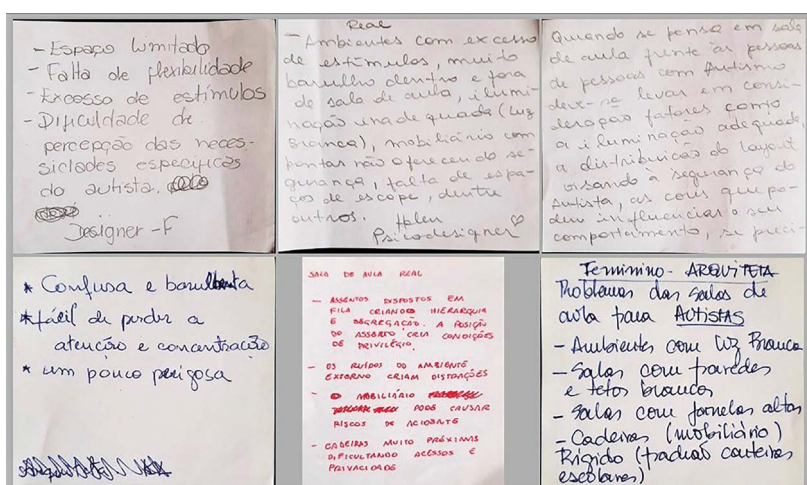 - Espaço limitado
- Falta de flexibilidade
- Excesso de estímulos
- Dificuldade de
percepção das neces-
sidades específicas
do autista.
Designer - F
Real
- Ambientes com excesso
de estímulos, muito
barulho dentro e fora
de sala de aula, ilumi-
nação inadequada (Luz
Branca), mobiliário com
pontas não oferecendo se-
gurança, falta de espa-
ços de escape, dentre
outros. Helen
Psicodesigner
Quando se pensa em sala
de aula frente às pessoas
de pessoas com Autismo
deve-se levar em consi-
deração fatores como
a iluminação adequada,
a distribuição do layout
visando à segurança do
Autista, as cores que po-
dem influenciar o seu
comportamento, se preci-
* Confusa e barulhenta
* fácil de perder a
atenção e concentração
* um pouco perigosa
SALA DE AULA REAL
- ASSENTOS DISPOSTOS EM
FILA CRIANDO HIERARQUIA
E SEGREGAÇÃO. A POSIÇÃO
DO ASSENTO CRIA CONDIÇÕES
DE PRIVILÉGIO.
- OS RUÍDOS DO AMBIENTE
EXTERNO CRIAM DISTRAÇÕES
- O MOBILIÁRIO
PODE CAUSAR
RISCOS DE ACIDENTE
- CADEIRAS MUITO PRÓXIMAS
DIFICULTANDO ACESSOS E
PRIVACIDADE
Feminino - ARQUITETA
Problemas das salas de
aula para AUTISTAS
- Ambientes com luz Branca
- Salas com paredes
e tetos brancos
- Salas com janelas altas
- Cadeiras (mobiliário)
Rígido (padrão carteiras
escolares)